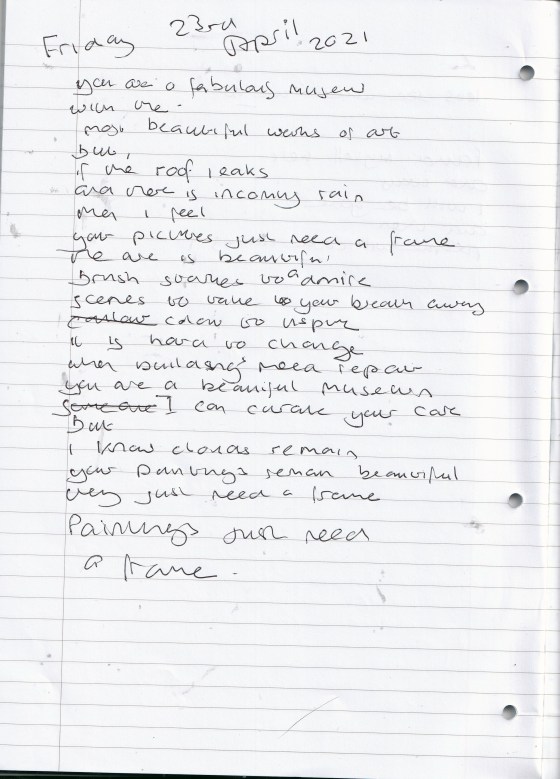 Friday 23rd April 2021
you are a fabulous museum
with the
most beautiful works of art
But,
if the roof leaks
and there is incoming rain
then I feel
your pictures just need a frame
the art is beautiful
Brush strokes to admire
scenes to take your breath away
colour to inspire
it is hard to change
when buildings need repair
you are a beautiful museum
I can curate your care
But
I know clouds remain
your paintings remain beautiful
they just need a frame
Paintings just need
a frame.